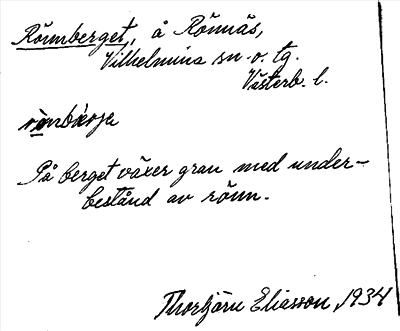 Rönnberget, å Rönnäs,
Vilhelmina sn. o. tg.
Västerb. l.
På berget växer gran med under-
bestånd av rönn.
Thorbjörn Eliasson, 1934